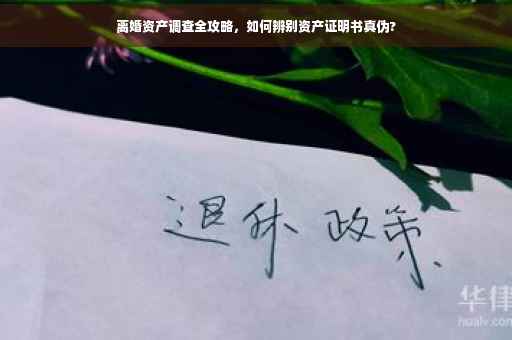 离婚资产调查全攻略，如何辨别资产证明书真伪？
退休 政策
华律
hualv.com